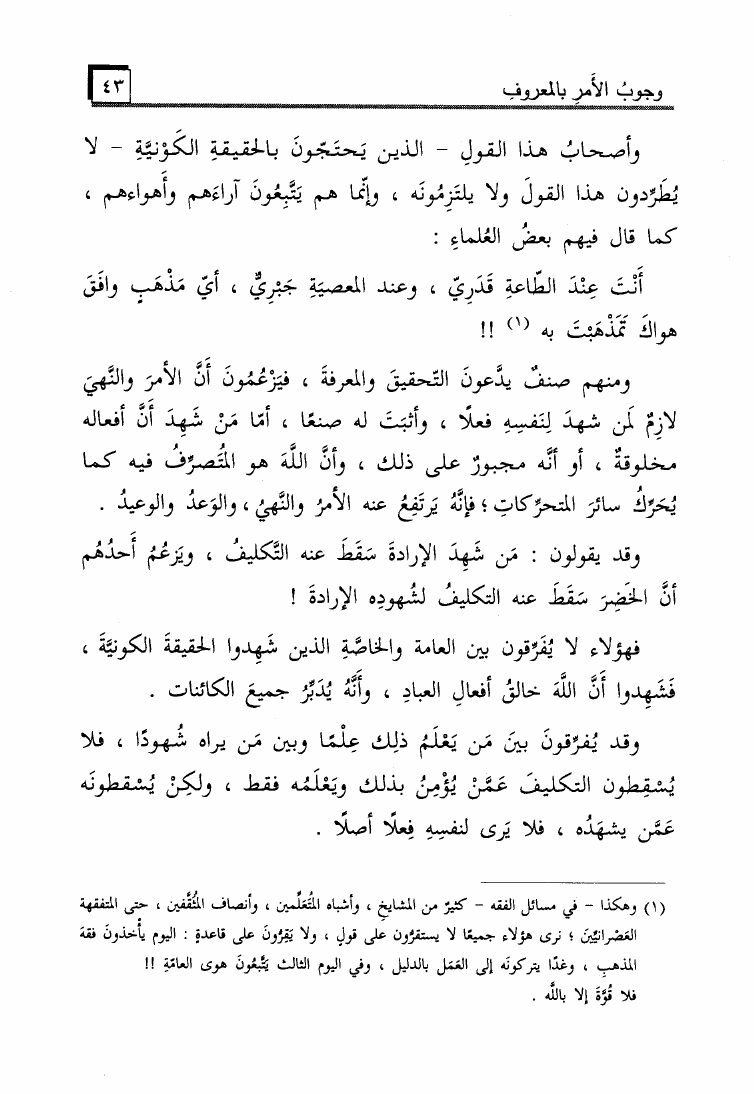 وجوبُ الأَمرِ بالمعروفِ
٤٣
وأصحابُ هذا القولِ - الذين يَحتَجّونَ بالحقيقةِ الكَوْنيَّةِ - لا
يُطَرِّدون هذا القولَ ولا يلتَزِمُونَه ، وإنّما هم يَتَّبِعُونَ آراءَهم وأَهواءهم ،
كما قال فيهم بعضُ العُلماءِ :
أَنْتَ عِنْدَ الطّاعةِ قَدَرِيّ ، وعند المعصيَةِ جَبْرِيٌّ ، أيّ مَذْهَبٍ وافَقَ
هواكَ تَمَذْهَبْتَ به (١) !!
ومنهم صنفٌ يدَّعونَ التّحقيقَ والمعرفةَ ، فيَزْعُمُونَ أَنَّ الأمرَ والنَّهيَ
لازِمٌ لَمن شهدَ لِنَفسِهِ فعلًا ، وأثبَتَ له صنعًا ، أمّا مَنْ شَهِدَ أَنَّ أفعاله
مخلوقةٌ ، أو أنَّه مجبورٌ على ذلك ، وأنَّ اللَّهَ هو المُتَصرِّفُ فيه كما
يُحَرِّكُ سائرَ المتحرِّكاتِ ؛ فإنَّهُ يَرتَفِعُ عنه الأمرُ والنَّهيُ ، والوَعدُ والوعيدُ .
وقد يقولون : مَن شَهِدَ الإرادةَ سَقَطَ عنه التَّكليفُ ، ويَزعُمُ أَحدُهُم
أنَّ الخَضِرَ سَقَطَ عنه التكليفُ لشُهودِه الإرادةَ !
فهؤلاء لا يُفَرِّقون بين العامة والخاصَّةِ الذين شَهِدوا الحقيقةَ الكونيَّةَ ،
فَشَهِدوا أنَّ اللَّهَ خالقُ أفعالِ العبادِ ، وأَنَّهُ يُدَبِّرُ جميعَ الكائنات .
وقد يُفرِّقونَ بينَ مَن يَعْلَمُ ذلِك عِلْمًا وبين مَن يراه شُهودًا ، فلا
يُسْقِطون التكليفَ عَمَّنْ يُؤْمِنُ بذلك ويَعْلَمُه فقط ، ولكِنْ يُسْقطونَه
عَمَّن يشهَدُه ، فلا يَرى لنفسِهِ فِعلًا أصلًا .
(١) وهكذا - في مسائل الفقه - كثيرٌ من المشايخِ ، وأشباه المُتَعَلِّمين ، وأنصاف المُثَقَّفين ، حتى المتفقهة
العَصْرانيِّينَ ؛ نرى هؤلاء جميعًا لا يستقرُّون على قولٍ ، ولا يَقِرُّونَ على قاعدةٍ : اليوم يأخذونَ فقهَ
المذهبِ ، وغدًا يتركونَه إلى العَمَل بالدليل ، وفي اليوم الثالث يَتَّبعُونَ هوى العامّةِ !!
فلا قُوَّةَ إلا باللَّه .